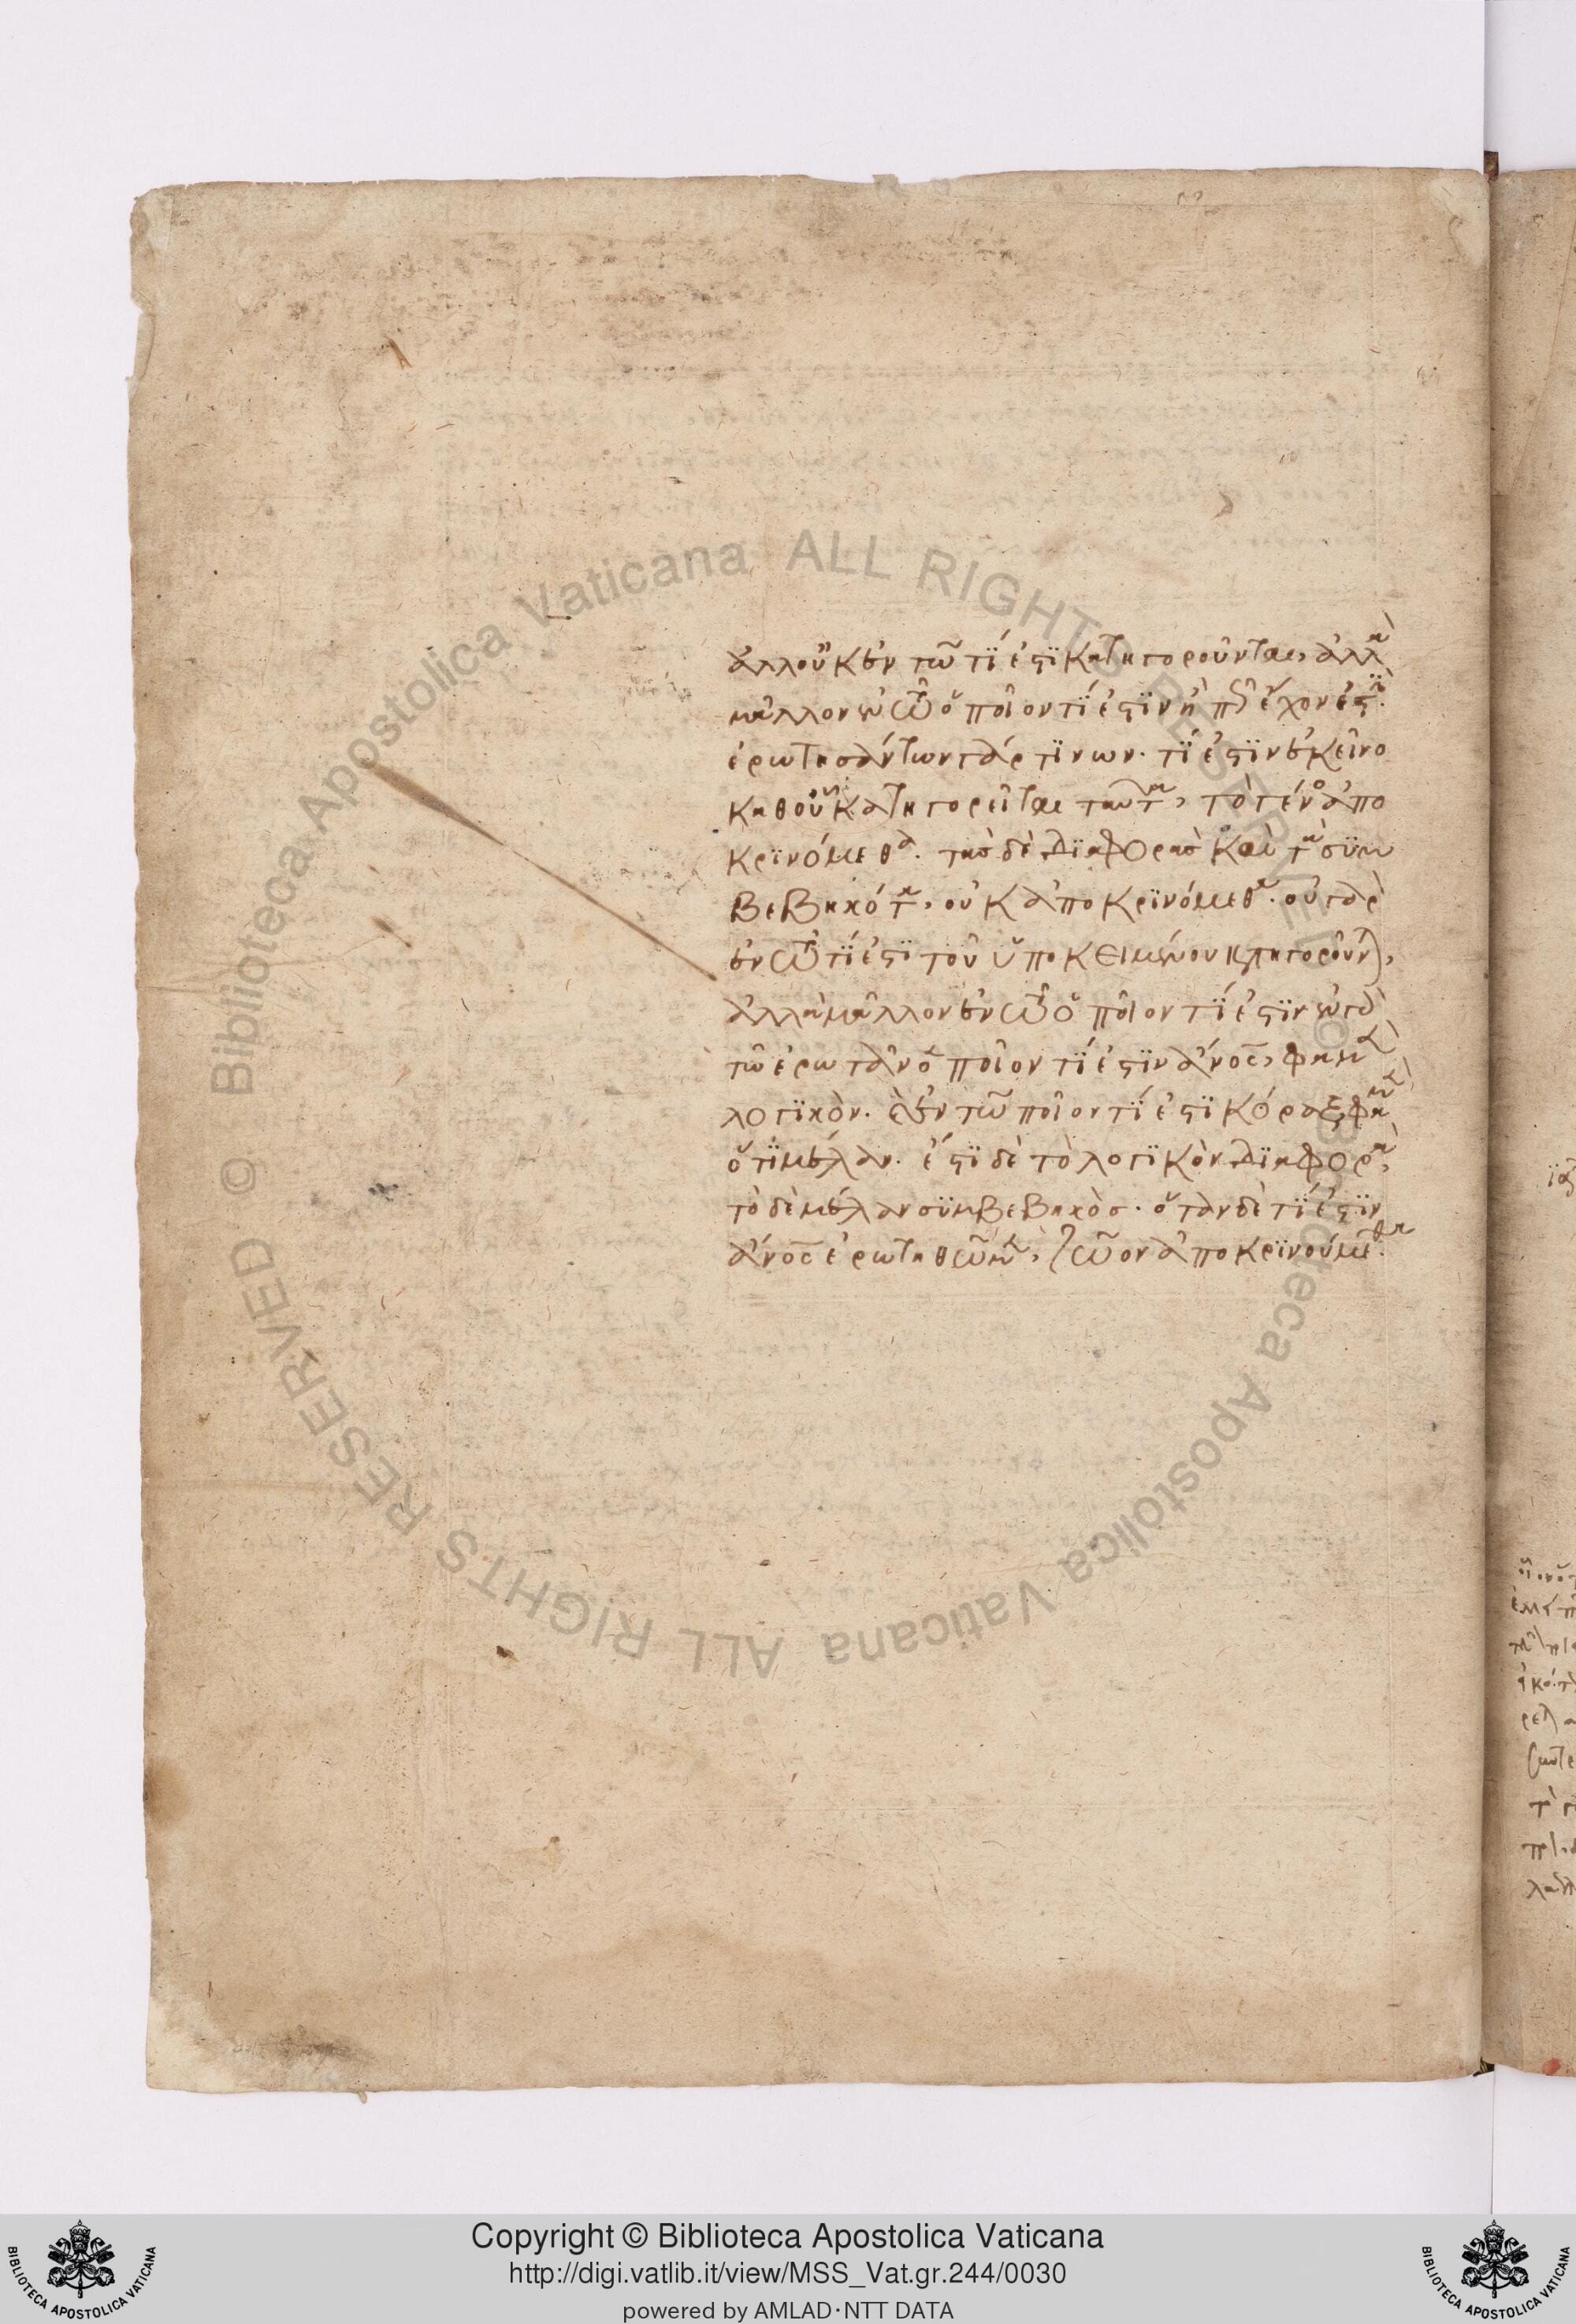 ἀλλ' οὐκ ἐν τῶ τί ἐστι κατηγοροῦνται, ἀλλὰ
μᾶλλον ἐν τῶ ὁποῖον τί ἐστιν ἢ πῶς ἔχον ἐστί.
ἐρωτησάντων γάρ τινων. τί ἐστιν ἐκεῖνο
καθ' οὗ κατηγορεῖται ταῦτα, τὸ γένος ἀπο
κρινόμεθα. τὰς δὲ διαφορὰς καὶ τὰ συμ
βεβηκότα, οὐκ ἀποκρινόμεθα. οὐ γὰρ
ἐν τῶ τί ἐστι τοῦ ὑποκειμένου κατηγοροῦνται,
ἀλλὰ μᾶλλον ἐν τῶ ὁποῖον τί ἐστιν ἐν γὰρ
τῶ ἐρωτᾶν ὁποῖον τί ἐστιν ἄνος, φαμὲν
λογικόν. καὶ ἐν τῶ ποῖον τί ἐστι κόραξ, φαμὲν
ὅτι μέλαν. ἔστι δὲ τὸ λογικὸν διαφορὰ,
τὸ δὲ μέλαν συμβεβηκὸς. ὅταν δὲ τί ἐστιν
ἄνος ἐρωτηθῶμεν, ζῶον ἀποκρινούμεθα.
Copyright © Biblioteca Apostolica Vaticana
http://digi.vatlib.it/view/MSS_Vat.gr.244/0030
powered by AMLAD·NTT DATA
Biblioteca Apostolica Vaticana ALL RIGHTS RESERVED ©
Biblioteca Apostolica Vaticana ALL RIGHTS RESERVED ©
BIBLIOTECA APOSTOLICA VATICANA
BIBLIOTECA APOSTOLICA VATICANA